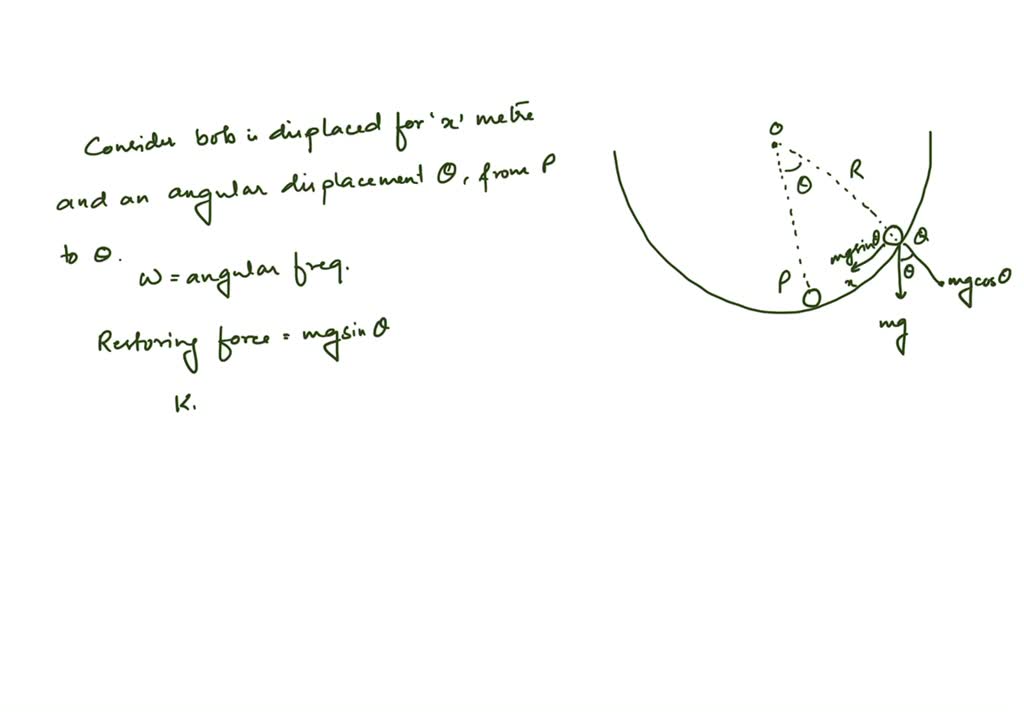 Consider bob is displaced for 'x' metre
and an angular displacement θ, from P
to Q.
ω = angular freq.
Restoring force = mg sin θ
K.
O
θ
R
mg sinθ
Q
θ
x
P
mg cos θ
mg